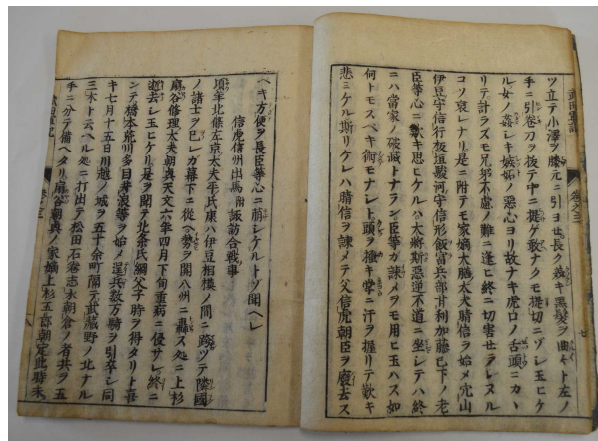 武田軍記 巻之三 七
ツ立テ小澤ヲ膝元ニ引ヨせ長ク義キ黒髪ヲ曲ゲト左ノ
手ニ引巻刀ヲ抜テ中ニ提ケ敢ナクモ提切ニゾレ玉ヒケ
ル女ノ姦レキ嫉妬ノ悪心ヨリ故ナキ虎口ノ舌頭ニカヽ
リテ計ラズモ兄弟不慮ノ難ニ逢ヒ終ニ切害せラレヌル
コソ哀レナリ是ニ附テモ家嫡太膳太夫晴信ヲ始メ穴山
伊豆守信行板垣駿河守信形飯富兵部甘利加藤已下ノ老
臣等心ニ歎キ思ヒケルハ太守斯悪逆不道ニ坐レテハ終
ニハ當家ノ破滅トナラン臣等カ諌メヲモ用ヒ玉ハス如
何トモスベキ術モナレト頭ヲ掻キ掌ニ汗ヲ握リテ歎キ
悲ミケル斯リケレハ晴信ヲ諌メテ父信虎朝臣ヲ廢去ス
ヘキ方便ヲ長臣等心ニ籌レケルトゾ聞ヘレ
信虎信州出馬附諏訪合戦事
頃年北條左京太夫平氏康ハ伊豆相模ノ間ニ跨ツテ隣國
ノ諸士ヲ已レガ幕下ニ從ヘ勢ヲ関八州ニ振ス処ニ上杉
扇谷修理太夫朝興天文六年四月下旬重病ニ侵サレ終ニ
逝去レ玉ヒケリ是ヲ聞テ北条氏綱父子時ヲ得タリト喜
ンテ橋本荒川多目井浪等ヲ始メ逞兵数万騎ヲ引卒レ同
キ七月十五日川越ノ城ヲ五十余町隔テ武蔵野ノ北ナル
三木ト云ヘル処ニ打出テ松田石巻志水朝倉ノ者共ヲ五
手ニ分テ備ヘタリ扇谷朝興ノ家嫡上杉五郎朝定此時未
武田軍記 巻之三